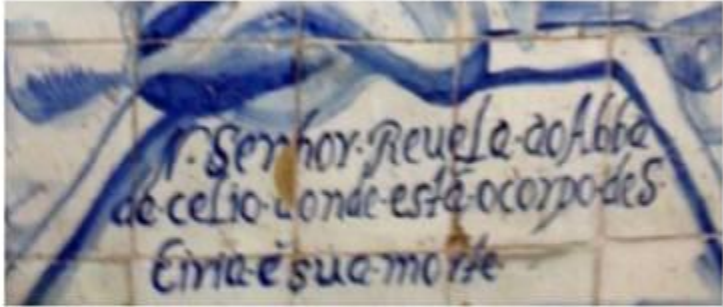 N. Senhor. Reuela. ao Abba
de. celio. donde. está. o corpo. de S.
Eiria. e sua. morte